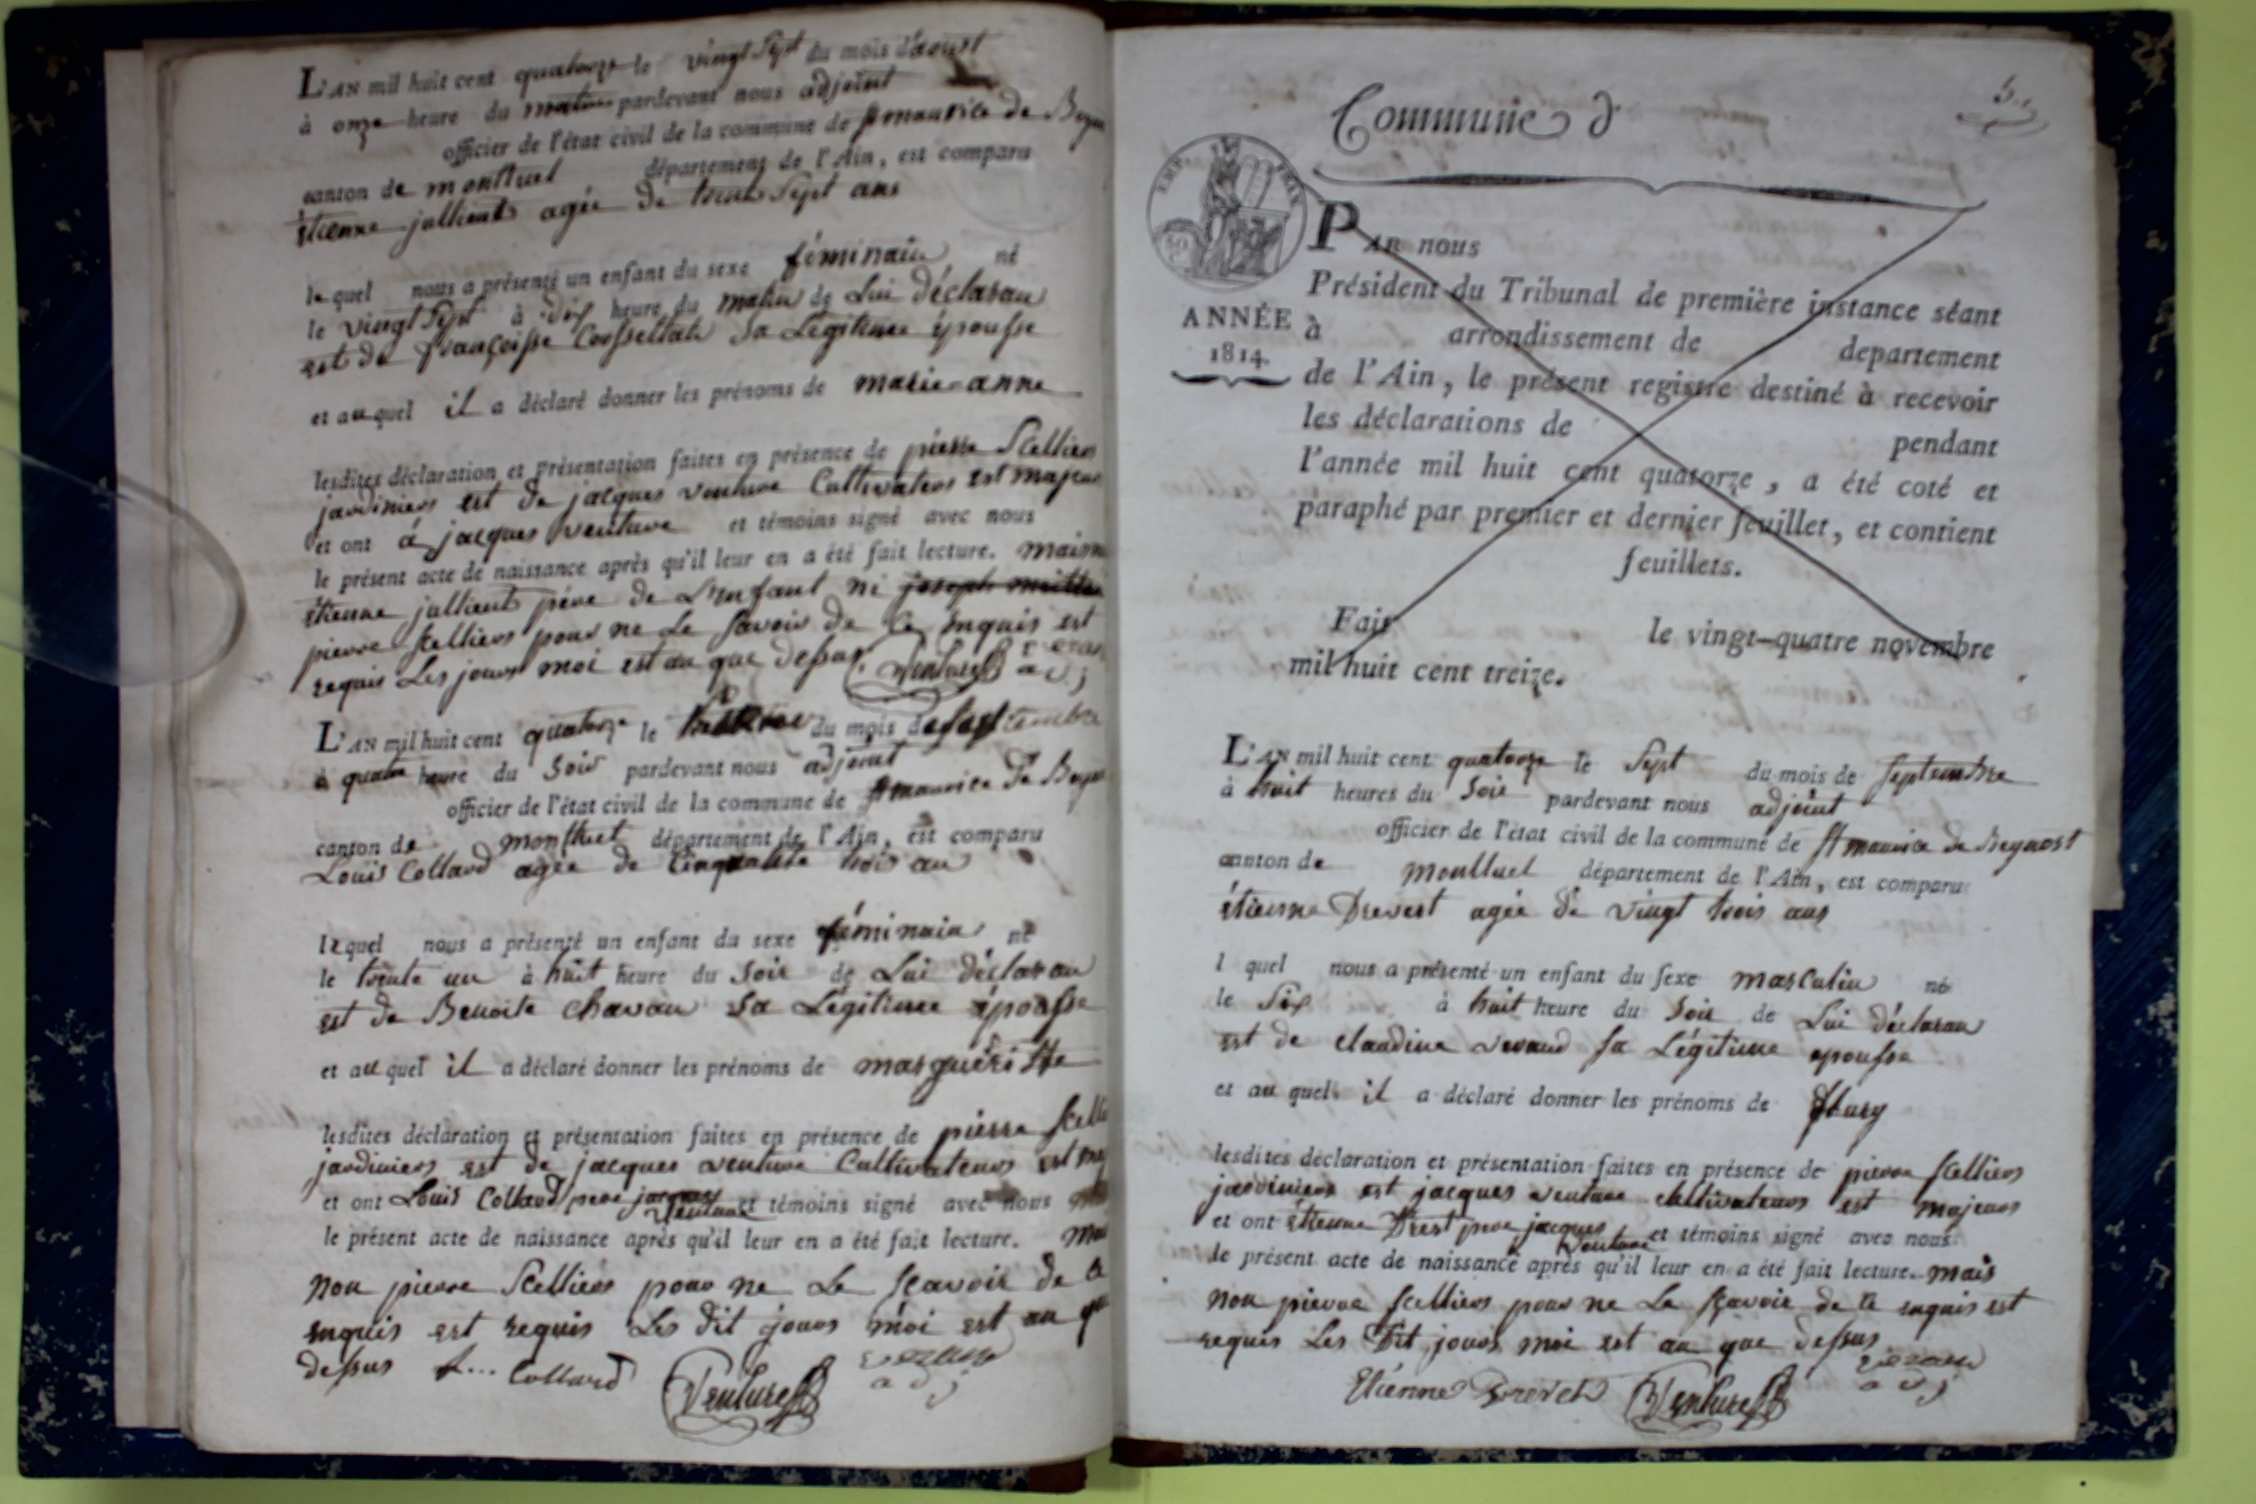 L'AN mil huit cent quatorze le vingt sept du mois d'aoust
à onze heure du matin pardevant nous adjoint
officier de l'état civil de la commune de st maurice de
canton de montluel département de l'Ain, est comparu
étienne jullient agée de trente sept ans
le quel nous a présenté un enfant du sexe féminain né
le vingt sept à dix heure du matin de Lui déclarau
est de françoisse sa Légitime épousse
et au quel il a déclaré donner les prénoms de marie-anne
lesdites déclaration et présentation faites en présence de pierre Scelliers
jardiniers est de jacques venture Cultivateurs est majeurs
et ont á jacques venture et témoins signé avec nous
le présent acte de naissance après qu'il leur en a été fait lecture.
étienne jullient père de L'enfant ni joseph
pierre scelliers pour ne Le savoir de ce enquis est
requis Les jours moi est an que dessus. Venture
L'AN mil huit cent quatorze le du mois de septembre
à quatre heure du Soir pardevant nous adjoint
officier de l'état civil de la commune de st maurice de
canton de montluel département de l'Ain, est comparu
Louis Collard agée de Cinquante trois an
lequel nous a présenté un enfant du sexe féminain né
le trente un à huit heure du Soir de Lui déclarau
est de Benoite Chavau sa Légitime épousse
et au quel il a déclaré donner les prénoms de margueritte
lesdites déclaration et présentation faites en présence de pierre
jardiniers est de jacques venture Cultivateurs est
et ont Louis Collard pere jacques venture et témoins signé avec nous
le présent acte de naissance après qu'il leur en a été fait lecture.
non pierre Scelliers pour ne Le sçavoir de ce
enquis est requis Les dit jours moi est an que
dessus Collard Venture
Commune d'
5
EMP. FRAN.
50
ANNÉE
1814.
PAR nous
Président du Tribunal de première instance séant
à arrondissement de departement
de l'Ain, le présent registre destiné à recevoir
les déclarations de pendant
l'année mil huit cent quatorze, a été coté et
paraphé par premier et dernier feuillet, et contient
feuillets.
Fait le vingt-quatre novembre
mil huit cent treize.
L'AN mil huit cent quatorze le Sept du mois de Septembre
à huit heures du Soir pardevant nous adjoint
officier de l'état civil de la commune de st maurice de Beynost
canton de montluel département de l'Ain, est comparu
étienne Drevest agée de vingt trois ans
l quel nous a présenté un enfant du sexe masculin né
le Six à huit heure du Soir de Lui déclarau
est de claudine sa Légitime epousse
et au quel il a déclaré donner les prénoms de fleury
lesdites déclaration et présentation faites en présence de pierre scelliers
jardiniers est jacques venture cultivateurs est majeurs
et ont étienne Drest pere jacques venture et témoins signé avec nous
le présent acte de naissance après qu'il leur en a été fait lecture. mais
non pierre scelliers pour ne Le sçavoir de ce enquis est
requis Les Dit jours moi est an que dessus
Etienne Drevet Venture